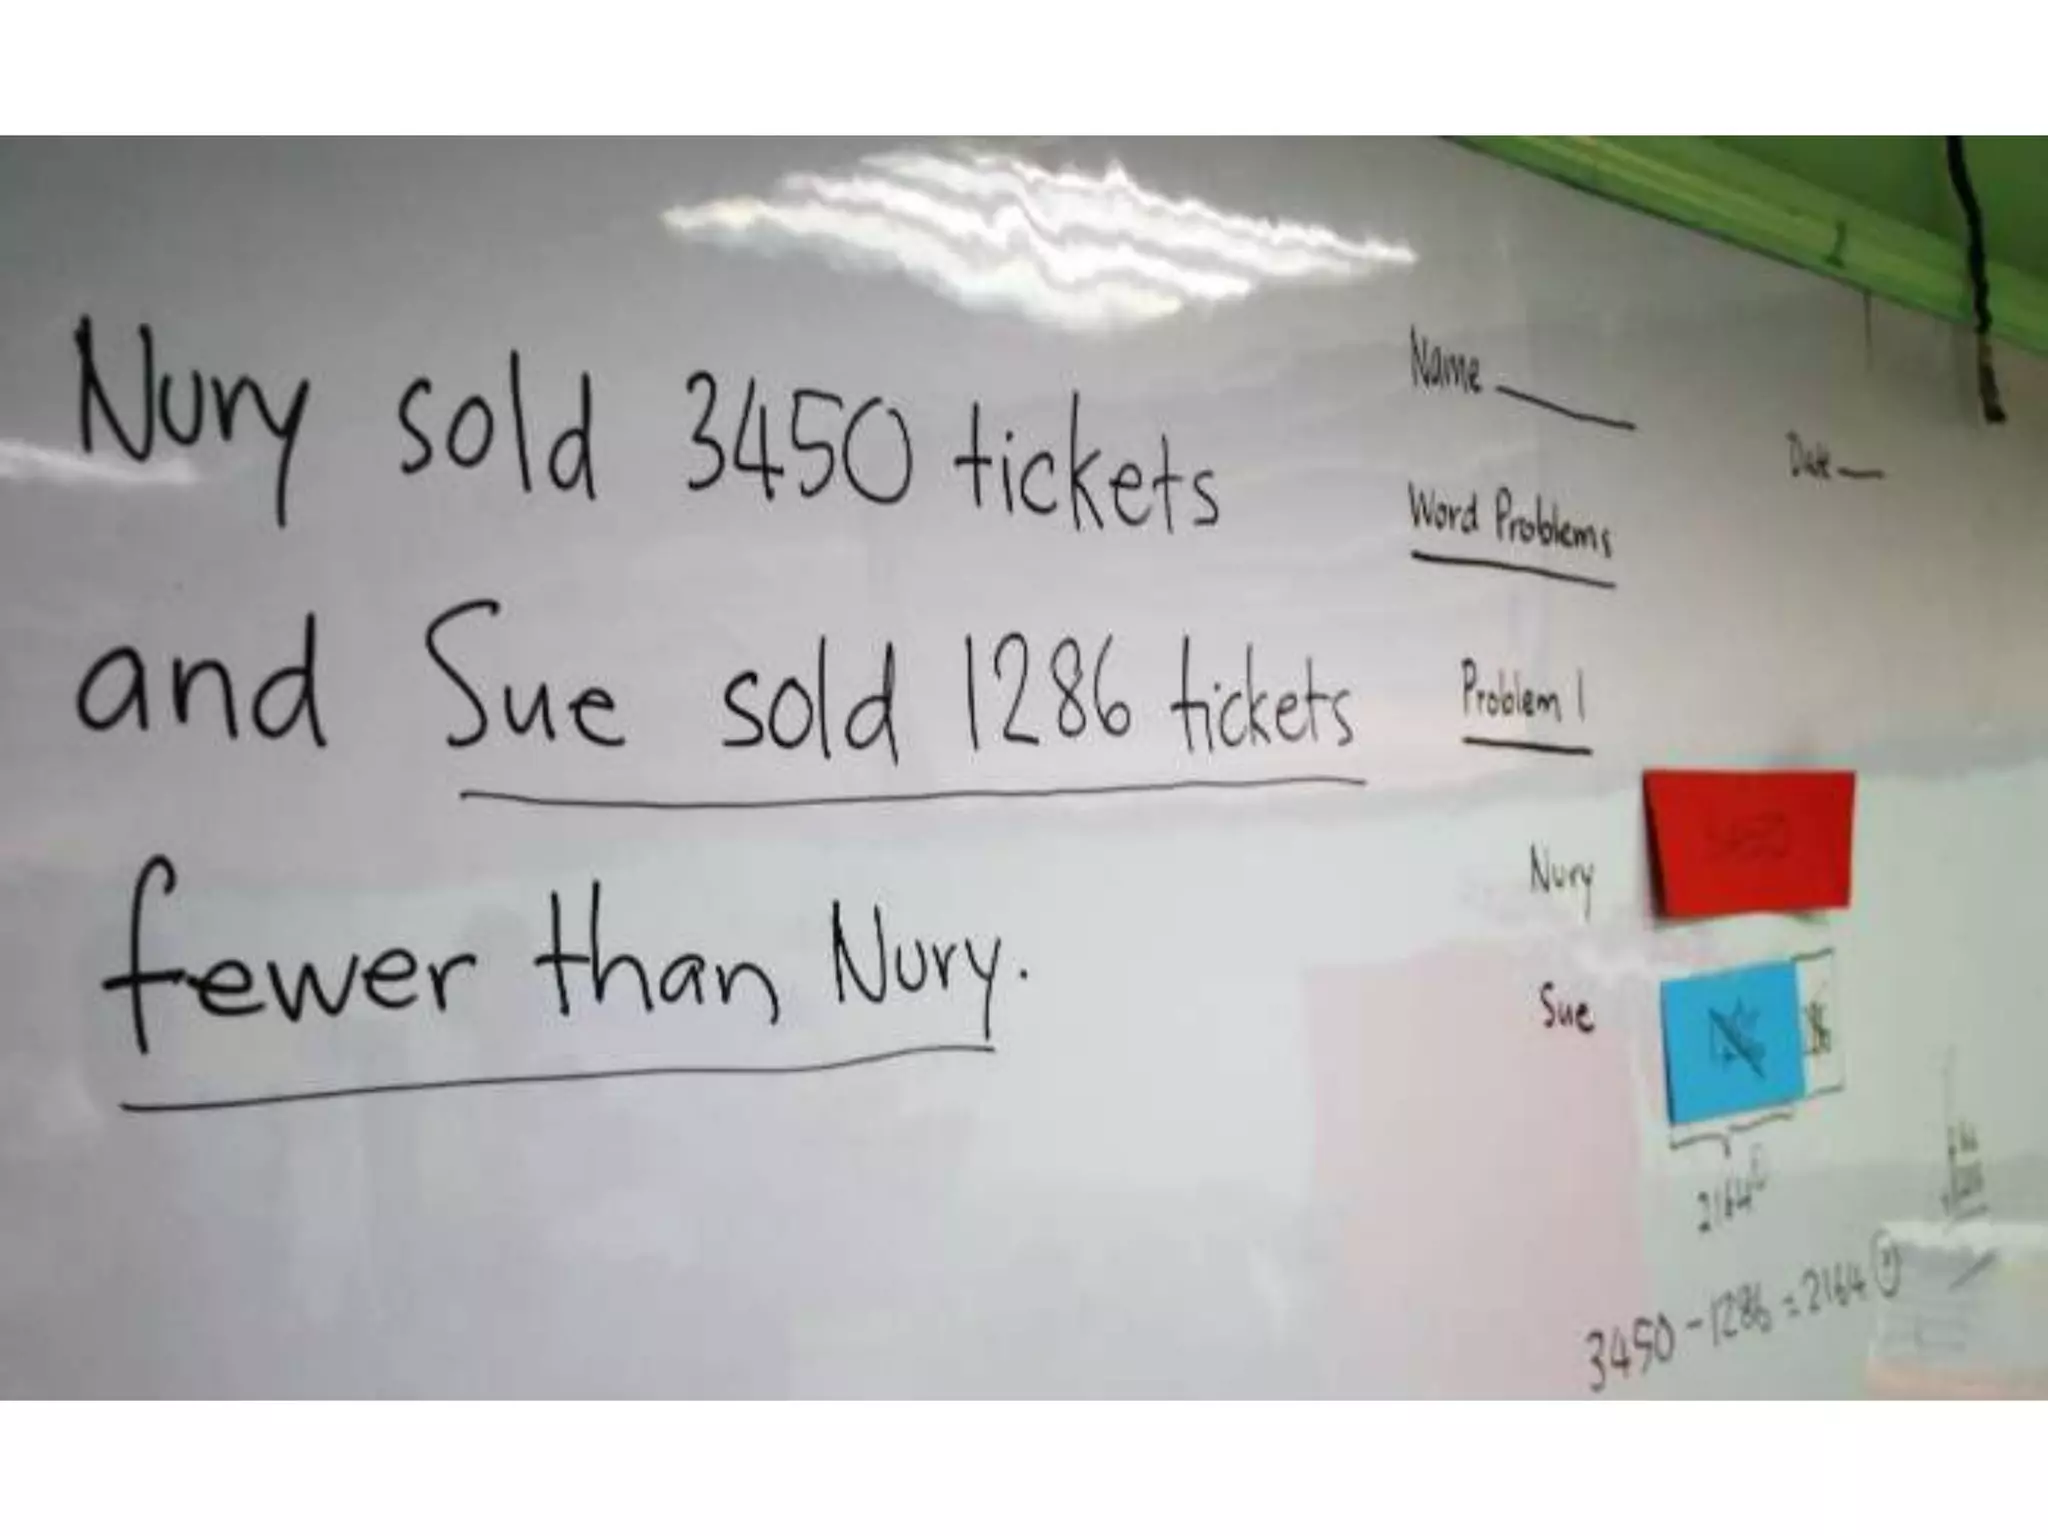 Nury sold 3450 tickets
and Sue sold 1286 tickets
fewer than Nury.
Name
Date
Word Problems
Problem 1
Nury
3450
Sue
2164
3450 - 1286 = 2164